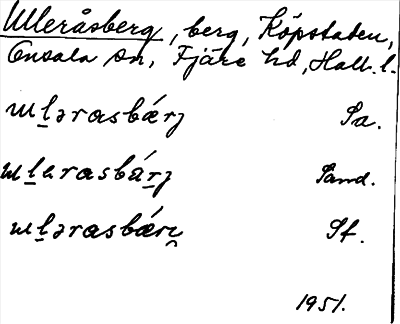 Ulleråsberg, berg, Köpstaden,
Onsala sn, Fjäre hd, Hall. l.
ɯl̲ərasbǽrj Sa.
ɯl̲erasbár̲j Sand.
ɯl̲ərasbǽri̯ Sf.
1951.